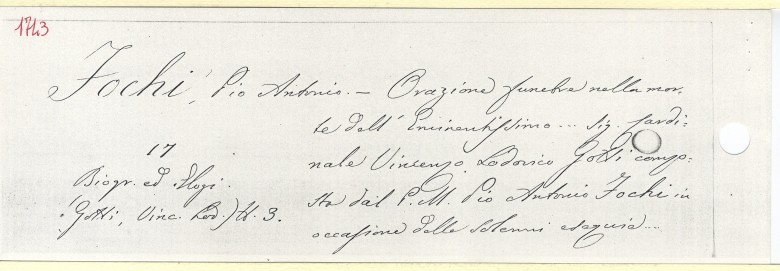 1743
Fochi, Pio Antonio. — Orazione funebre nella mor-
te dell' Eminentissimo... Sig. Cardi-
nale Vincenzo Lodovico Gotti compo-
sta dal P. M. Pio Antonio Fochi in
occasione delle solenni esequie....
17
Biogr. ed Elogi.
(Gotti, Vinc. Lod.) N. 3.